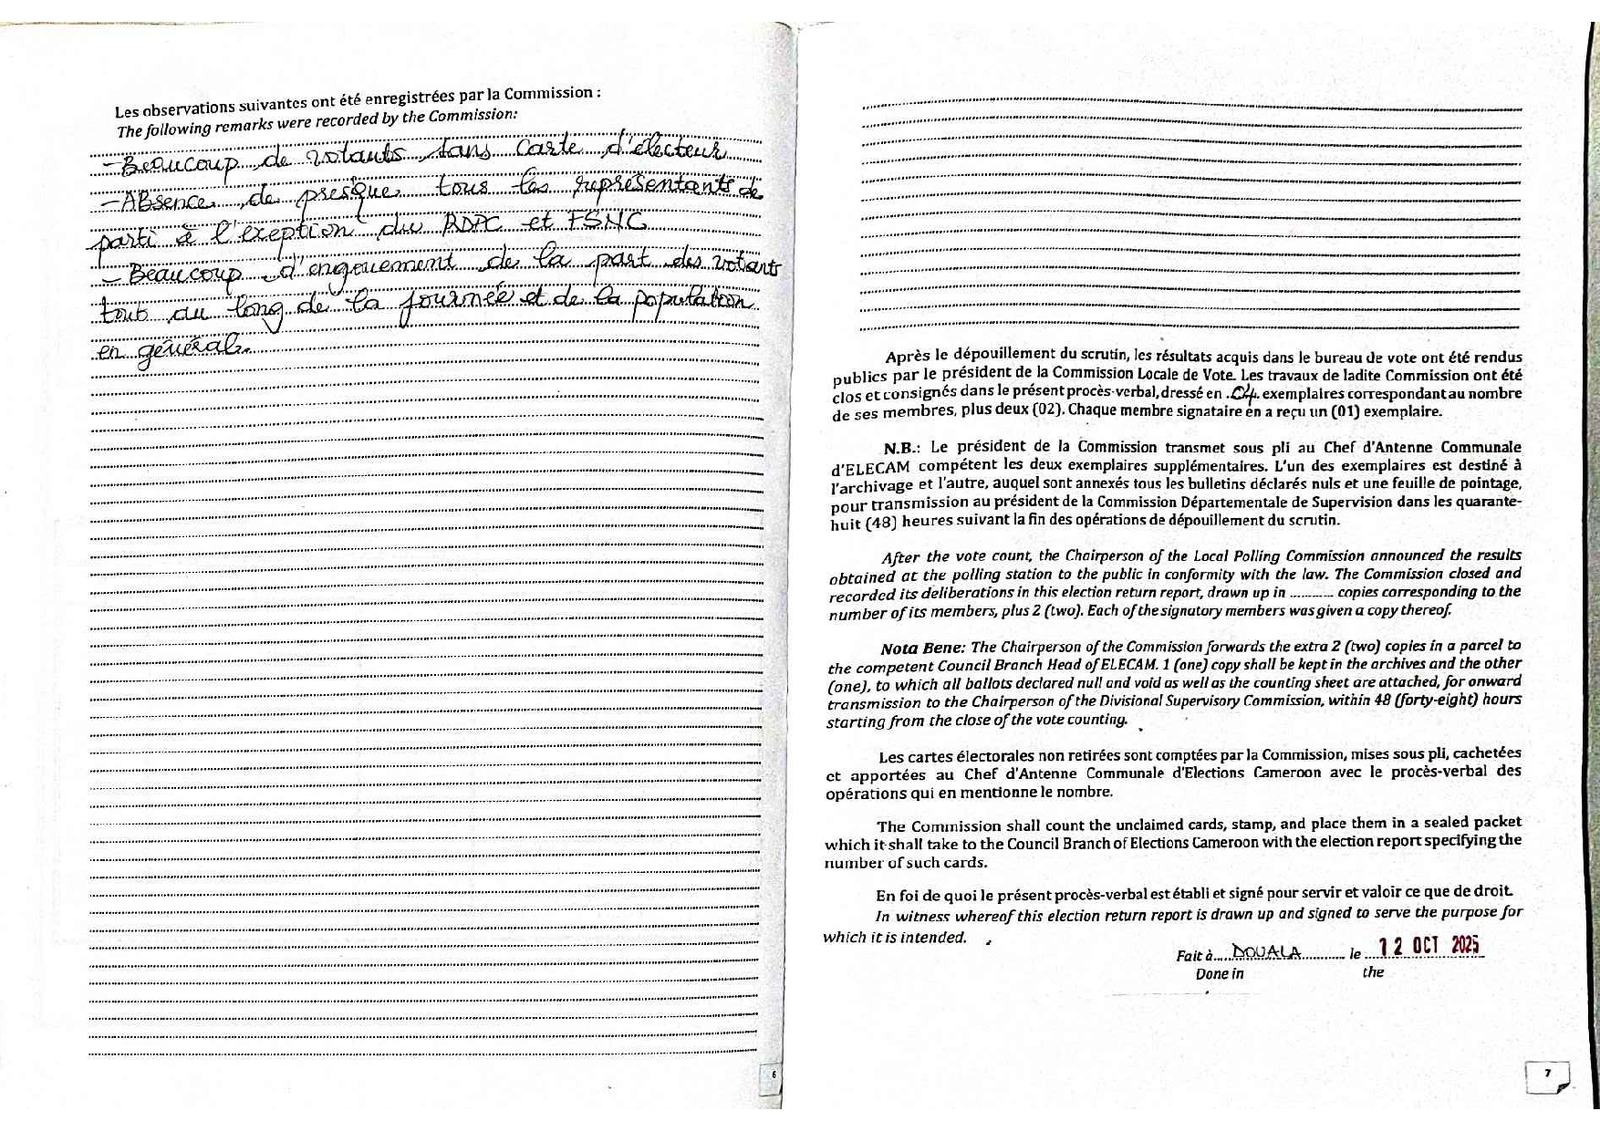 Les observations suivantes ont été enregistrées par la Commission :
The following remarks were recorded by the Commission:
- Beaucoup de votants sans carte d'électeur
- ABsence de presque tous les représentants de
parti à l'exeption du RDPC et FSNC
- Beaucoup d'engouement de la part des votants
tout au long de la journée et de la population
en général.
6
Après le dépouillement du scrutin, les résultats acquis dans le bureau de vote ont été rendus
publics par le président de la Commission Locale de Vote. Les travaux de ladite Commission ont été
clos et consignés dans le présent procès-verbal, dressé en 04 exemplaires correspondant au nombre
de ses membres, plus deux (02). Chaque membre signataire en a reçu un (01) exemplaire.
N.B.: Le président de la Commission transmet sous pli au Chef d'Antenne Communale
d'ELECAM compétent les deux exemplaires supplémentaires. L'un des exemplaires est destiné à
l'archivage et l'autre, auquel sont annexés tous les bulletins déclarés nuls et une feuille de pointage,
pour transmission au président de la Commission Départementale de Supervision dans les quarante-
huit (48) heures suivant la fin des opérations de dépouillement du scrutin.
After the vote count, the Chairperson of the Local Polling Commission announced the results
obtained at the polling station to the public in conformity with the law. The Commission closed and
recorded its deliberations in this election return report, drawn up in ........... copies corresponding to the
number of its members, plus 2 (two). Each of the signatory members was given a copy thereof.
Nota Bene: The Chairperson of the Commission forwards the extra 2 (two) copies in a parcel to
the competent Council Branch Head of ELECAM. 1 (one) copy shall be kept in the archives and the other
(one), to which all ballots declared null and void as well as the counting sheet are attached, for onward
transmission to the Chairperson of the Divisional Supervisory Commission, within 48 (forty-eight) hours
starting from the close of the vote counting.
Les cartes électorales non retirées sont comptées par la Commission, mises sous pli, cachetées
et apportées au Chef d'Antenne Communale d'Elections Cameroon avec le procès-verbal des
opérations qui en mentionne le nombre.
The Commission shall count the unclaimed cards, stamp, and place them in a sealed packet
which it shall take to the Council Branch of Elections Cameroon with the election report specifying the
number of such cards.
En foi de quoi le présent procès-verbal est établi et signé pour servir et valoir ce que de droit.
In witness whereof this election return report is drawn up and signed to serve the purpose for
which it is intended.
Fait à.....DOUALA........... le ...12 OCT 2025
Done in the
7